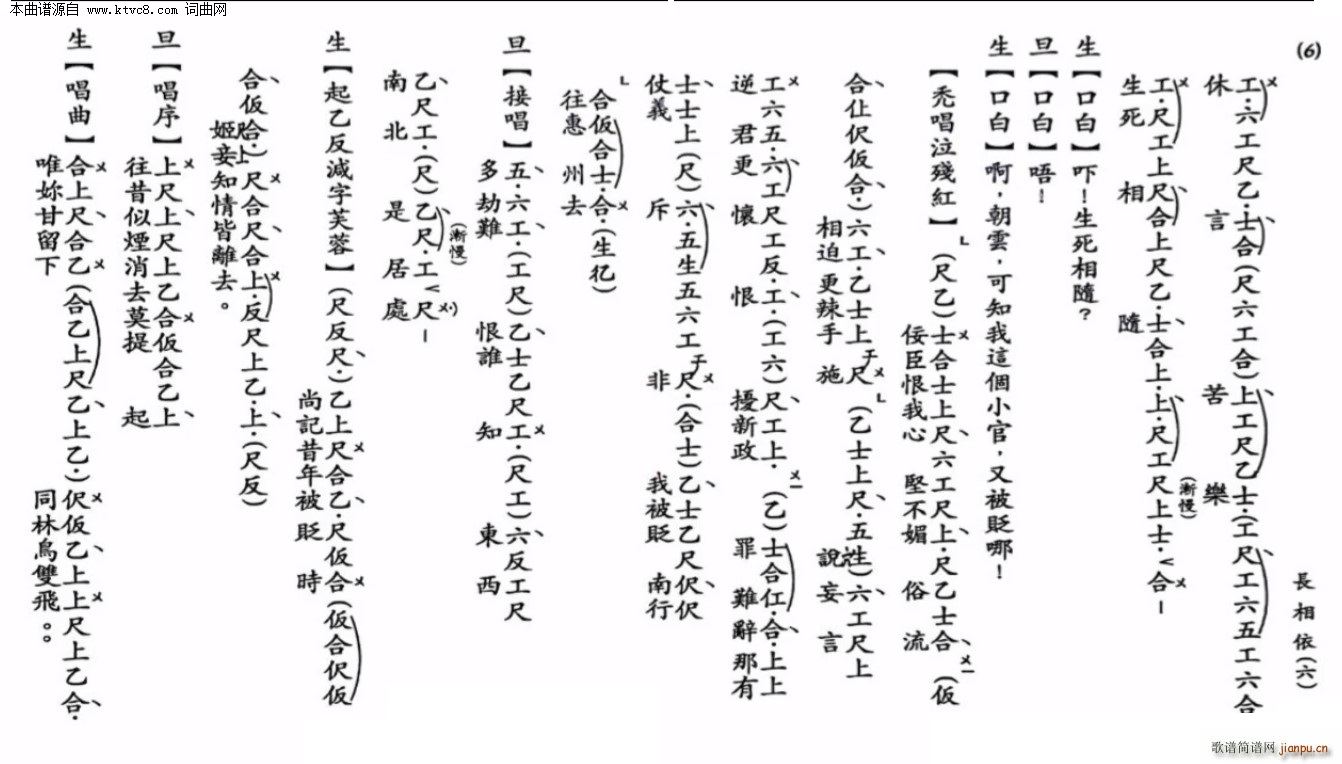 本曲谱源自 www.ktvc8.com 词曲网
(6)
長相依(六)
工.六工尺乙.士合(尺六工合)上工尺乙士.(工尺工六五工六合
休 言 苦 樂
(漸慢)
工.尺工上尺合上尺乙.士合上.上.尺工尺上士.合—
生死 相 隨
生【口白】吓!生死相隨?
旦【口白】唔!
生【口白】啊,朝雲,可知我這個小官,又被貶哪!
【禿唱泣殘紅】(尺乙)士合士上尺六工尺上.尺乙士合(仮
佞臣恨我心 堅不媚 俗 流
合仩伬仮合.)六工.乙士上尺(乙士上尺.五生)六工尺上
相迫更辣手 施 說妄 言
工六五.六工尺工反.工.(工六)尺工上.(乙)士合仜.合.上上
逆 君更 懷 恨 擾新政 罪 難辭那有
士士上(尺)六.五生五六工尺.(合士)乙士乙尺伬伬
仗義 斥 非 我被貶 南行
合仮.合士.合.(生杚)
往惠 州 去
旦【接唱】五.六工.(工尺)乙士乙尺工.(尺工)六反工尺
多劫難 恨誰 知 東 西
乙尺工.(尺)乙尺.工尺—
(漸慢)
南北 是 居 處
生【起乙反減字芙蓉】(尺反尺.)乙上尺合乙.尺仮合(仮合伬仮
尚記昔年被貶 時
合仮合.)尺合尺合上.反尺上乙.上.(尺反)
姬妾知情皆離去。
旦【唱序】上尺上尺上乙合仮合乙上
往昔似煙消去莫提 起
生【唱曲】合上尺合乙(合乙上尺乙上乙.)伬仮乙上上尺上乙合.
唯妳甘留下 同林鳥雙飛。。
歌谱简谱网 jianpu.cn